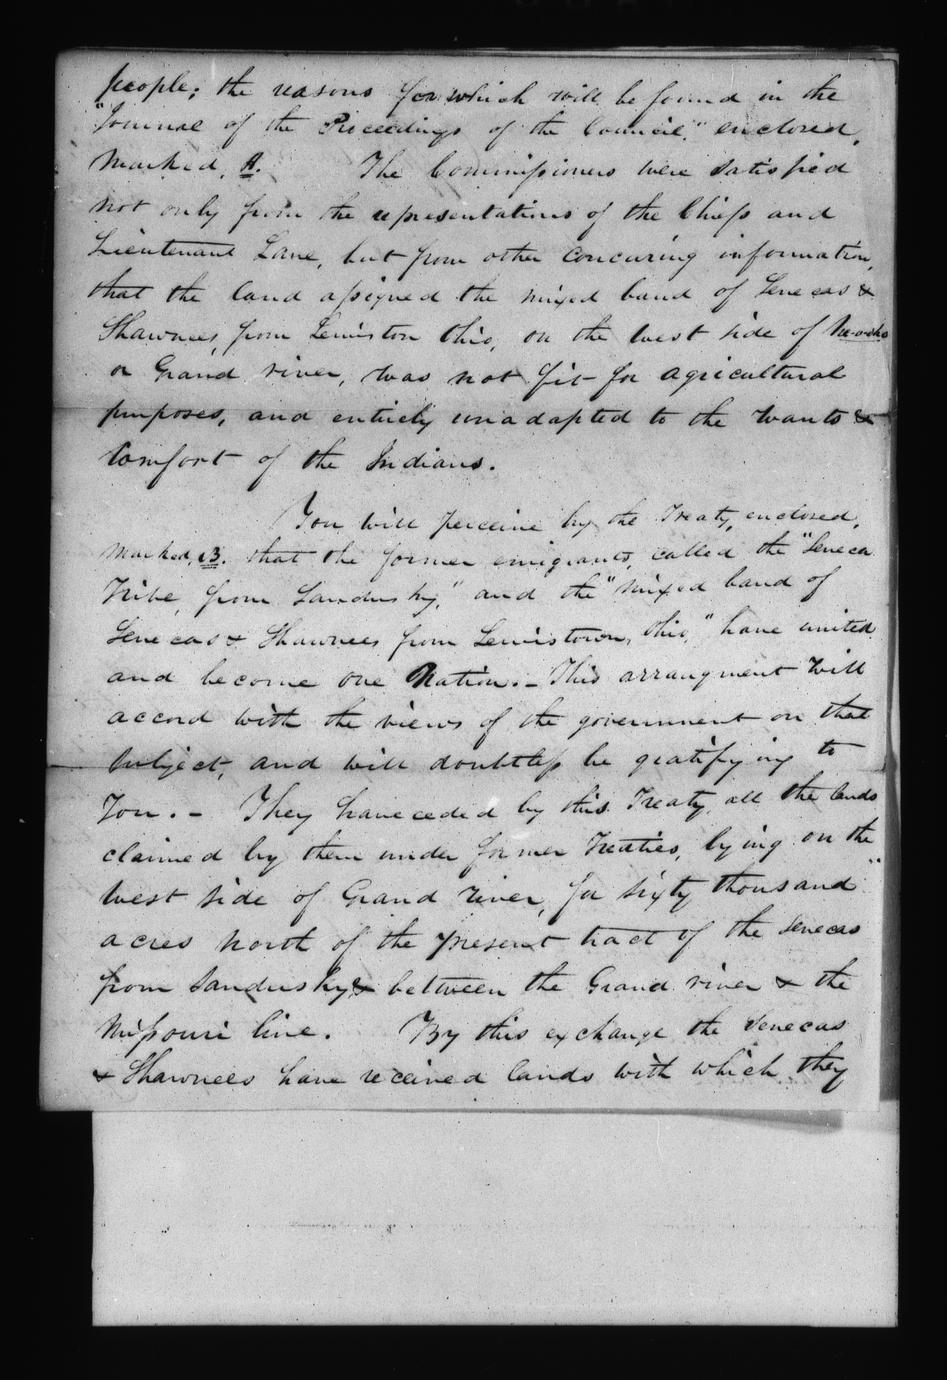 people; the reasons for which will be found in the
"Journal of the Proceedings of the Council," enclosed,
marked, A. The Commissioners were satisfied
not only from the representations of the Chiefs and
Lieutenant Lane, but from other concuring information,
that the land assigned the mixed band of Senecas &
Shawnees, from Lewiston Ohio, on the west side of Neosho
or Grand river, was not fit for agricultural
purposes, and entirely unadapted to the wants &
Comfort of the Indians.
You will perceive by the Treaty, enclosed,
marked, B. that the former emigrants, called the "Seneca
Tribe, from Sandusky," and the "mixed band of
Senecas & Shawnees from Lewistown, Ohio," have united
and become one Nation. - This arrangment will
accord with the views of the government on that
subject, and will doubtless be gratifying to
You. - They have ceded by this Treaty, all the lands
claimed by them under former Treaties, lying on the
west side of Grand river, for sixty thousand
acres north of the present tract of the Senecas
from Sandusky & between the Grand river & the
Missouri line. By this exchange the Senecas
& Shawnees have received lands with which they